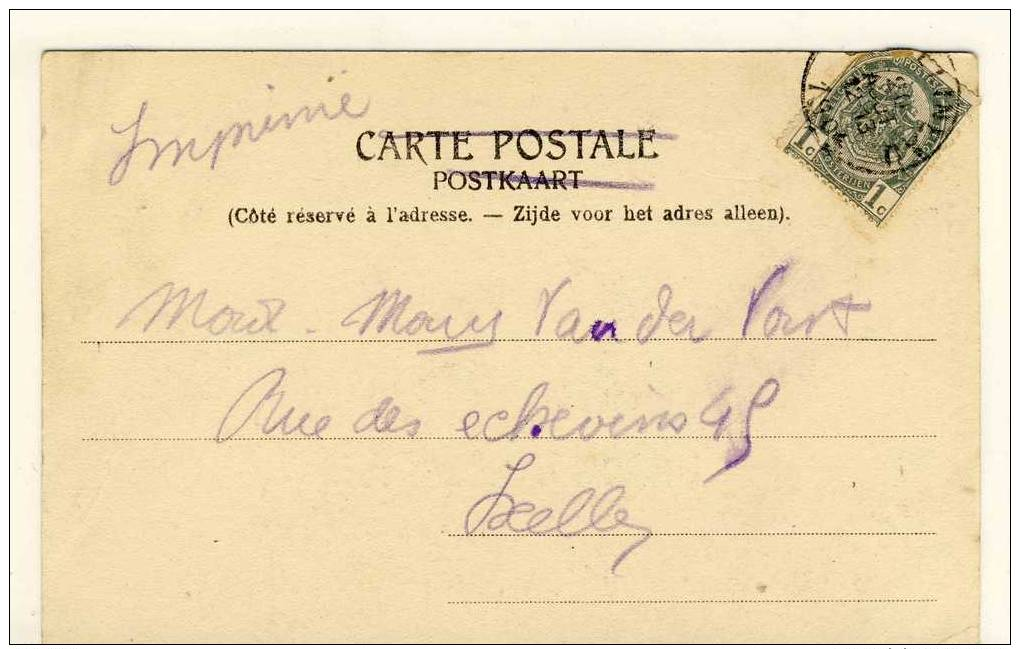 Imprimé
CARTE POSTALE
POSTKAART
(Côté réservé à l'adresse. — Zijde voor het adres alleen).
Van der
Rue des echevins 45
Ixelles
1c
1c